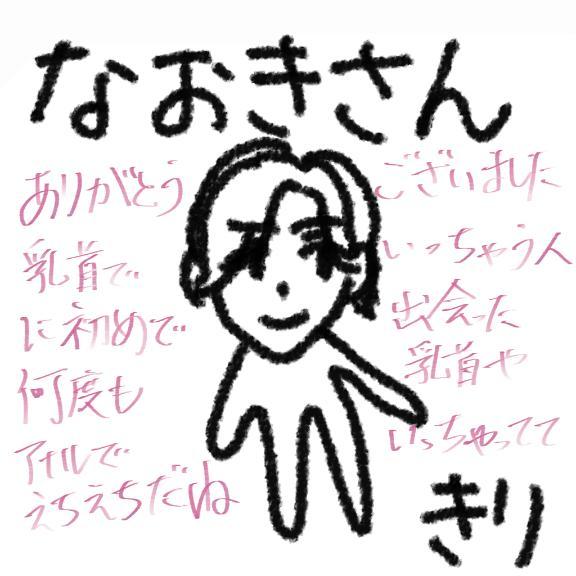 なおきさん
ありがとう ございました
乳首で いっちゃう人
に初めて 出会った
何度も 乳首や
アナルで いっちゃってて
えちえちだね
きり